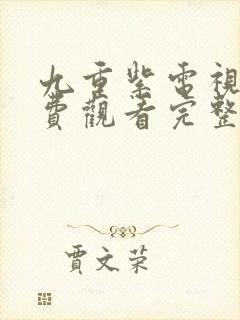 九重紫電視
費觀看完整
賈文荣